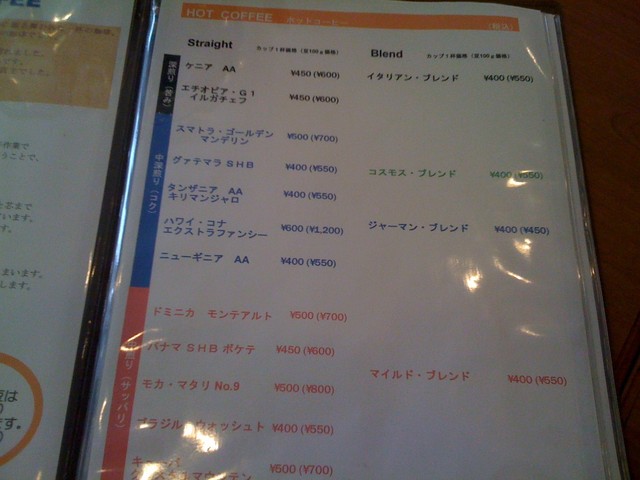 HOT COFFEE ホットコーヒー (税込)
Straight カップ1杯価格 (豆100g価格)
Blend カップ1杯価格 (豆100g価格)
深煎り (苦み)
ケニア AA ¥450 (¥600)
イタリアン・ブレンド ¥400 (¥550)
エチオピア・G1
イルガチェフ ¥450 (¥600)
中深煎り (コク)
スマトラ・ゴールデン
マンデリン ¥500 (¥700)
グァテマラ SHB ¥400 (¥550)
コスモス・ブレンド ¥400 (¥550)
タンザニア AA
キリマンジャロ ¥400 (¥550)
ハワイ・コナ
エクストラファンシー ¥600 (¥1,200)
ジャーマン・ブレンド ¥400 (¥450)
ニューギニア AA ¥400 (¥550)
煎り (サッパリ)
ドミニカ モンテアルト ¥500 (¥700)
パナマ SHB ボケテ ¥450 (¥600)
モカ・マタリ No.9 ¥500 (¥800)
マイルド・ブレンド ¥400 (¥550)
ブラジル・ウォッシュト ¥400 (¥550)
¥500 (¥700)
作業で
うことで、
います。
す。
まいます。
します。
豆は
ます。